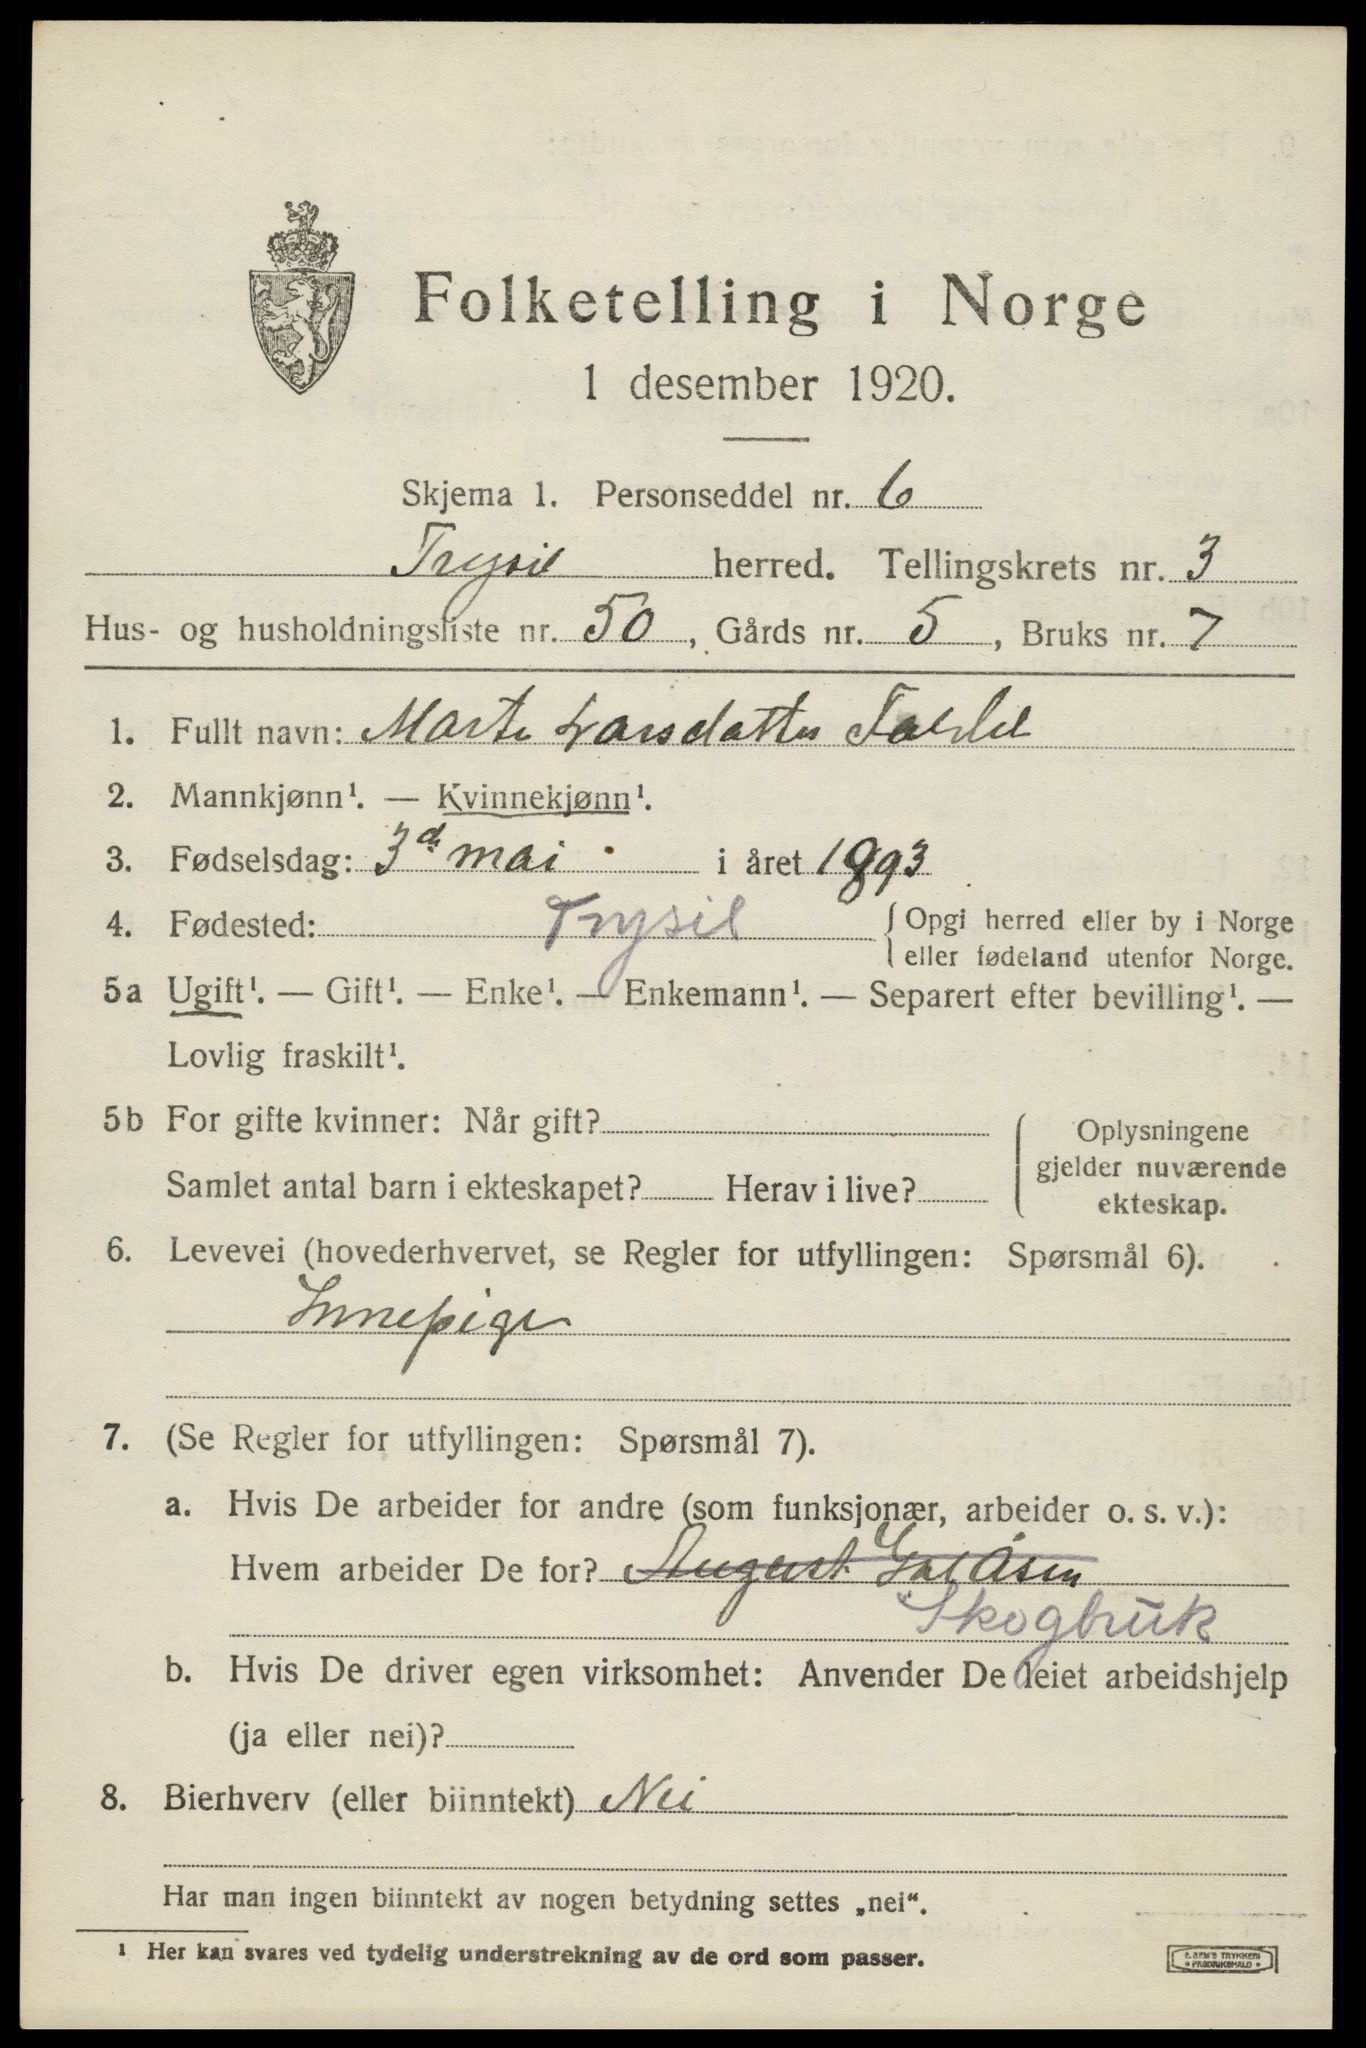 Folketelling i Norge
1 desember 1920.
Skjema 1. Personseddel nr. 6
Trysil herred. Tellingskrets nr. 3
Hus- og husholdningsliste nr. 50, Gårds nr. 5, Bruks nr. 7
1. Fullt navn: Marte Larsdatter
2. Mannkjønn¹. — Kvinnekjønn¹.
3. Fødselsdag: 3d mai i året 1893
4. Fødested: Trysil { Opgi herred eller by i Norge
eller fødeland utenfor Norge.
5a Ugift¹. — Gift¹. — Enke¹. — Enkemann¹. — Separert efter bevilling¹. —
Lovlig fraskilt¹.
5b For gifte kvinner: Når gift?
Samlet antal barn i ekteskapet? Herav i live?
Oplysningene
gjelder nuværende
ekteskap.
6. Levevei (hovederhvervet, se Regler for utfyllingen: Spørsmål 6).
Innepige
7. (Se Regler for utfyllingen: Spørsmål 7).
a. Hvis De arbeider for andre (som funksjonær, arbeider o. s. v.):
Hvem arbeider De for? August
Skogbruk
b. Hvis De driver egen virksomhet: Anvender De leiet arbeidshjelp
(ja eller nei)?
8. Bierhverv (eller biinntekt) Nei
Har man ingen biinntekt av nogen betydning settes „nei“.
¹ Her kan svares ved tydelig understrekning av de ord som passer.
E. SEM'S TRYKKERI
FREDRIKSHALD